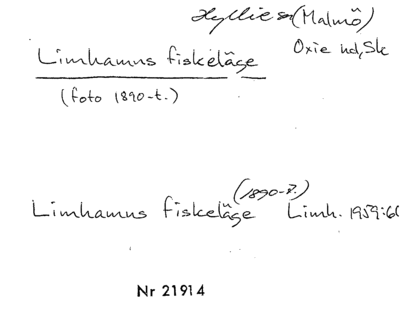 Hyllie sn (Malmö)
Limhamns fiskeläge
Oxie hd, Sk
(foto 1890-t.)
(1890-t.)
Limhamns fiskeläge Limh. 1959:60
Nr 21914